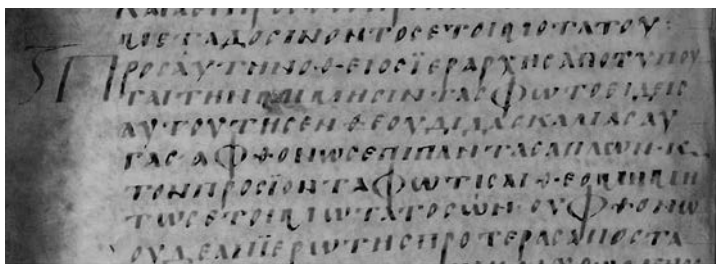 ΜΕΤΑΔΟCΙΝΟΝΤΟCΕΤΟΙΜΟΤΑΤΟΥ·
ΠΡΟCΑΥΤΗΝΟΘΕΙΟCΪΕΡΑΡΧΗCΑΠΟΤΥΠΟΥ
ΤΑΙΤΗΝΜΙΜΗCΙΝΤΑCΦΩΤΟΕΙΔΕΙC
ΑΥΤΟΥΤΗCΕΝΘΕΟΥΔΙΔΑCΚΑΛΙΑCΑΥ
ΓΑC·ΑΦΘΟΝΩCΕΠΙΠΑΝΤΑCΑΠΛΩΝ·Κ
ΤΟΝΠΡΟCΪΟΝΤΑΦΩΤΙCΑΙΘΕΟΜΙΜΗ
ΤΩCΕΤΟΙΜΩΤΑΤΟCΩΝ·ΟΥΦΘΟΝΩ
ΟΥΔΕΑΝΪΕΡΩΤΗCΠΡΟΤΕΡΑCΑΠΟCΤΑ